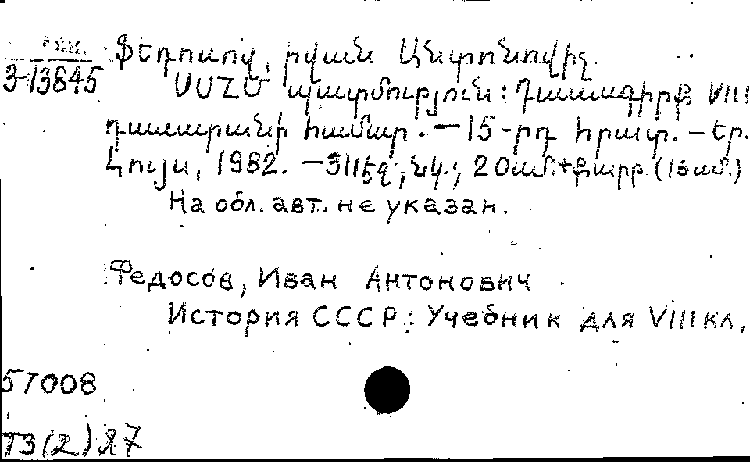 3-13645
Ֆեդոսով, Իվան Անտոնովիչ.
ՍՍՀՄ պատմություն: Դասագիրք VIII
դասարանի համար. — 15-րդ հրատ. — Եր.
Լույս, 1982. — 311 էջ, նկ.; 20սմ+քարտ. (16սմ)
На обл. авт. не указан.
Федосов, Иван Антонович
История СССР: Учебник для VIII кл.
57008
Т3(2)я7